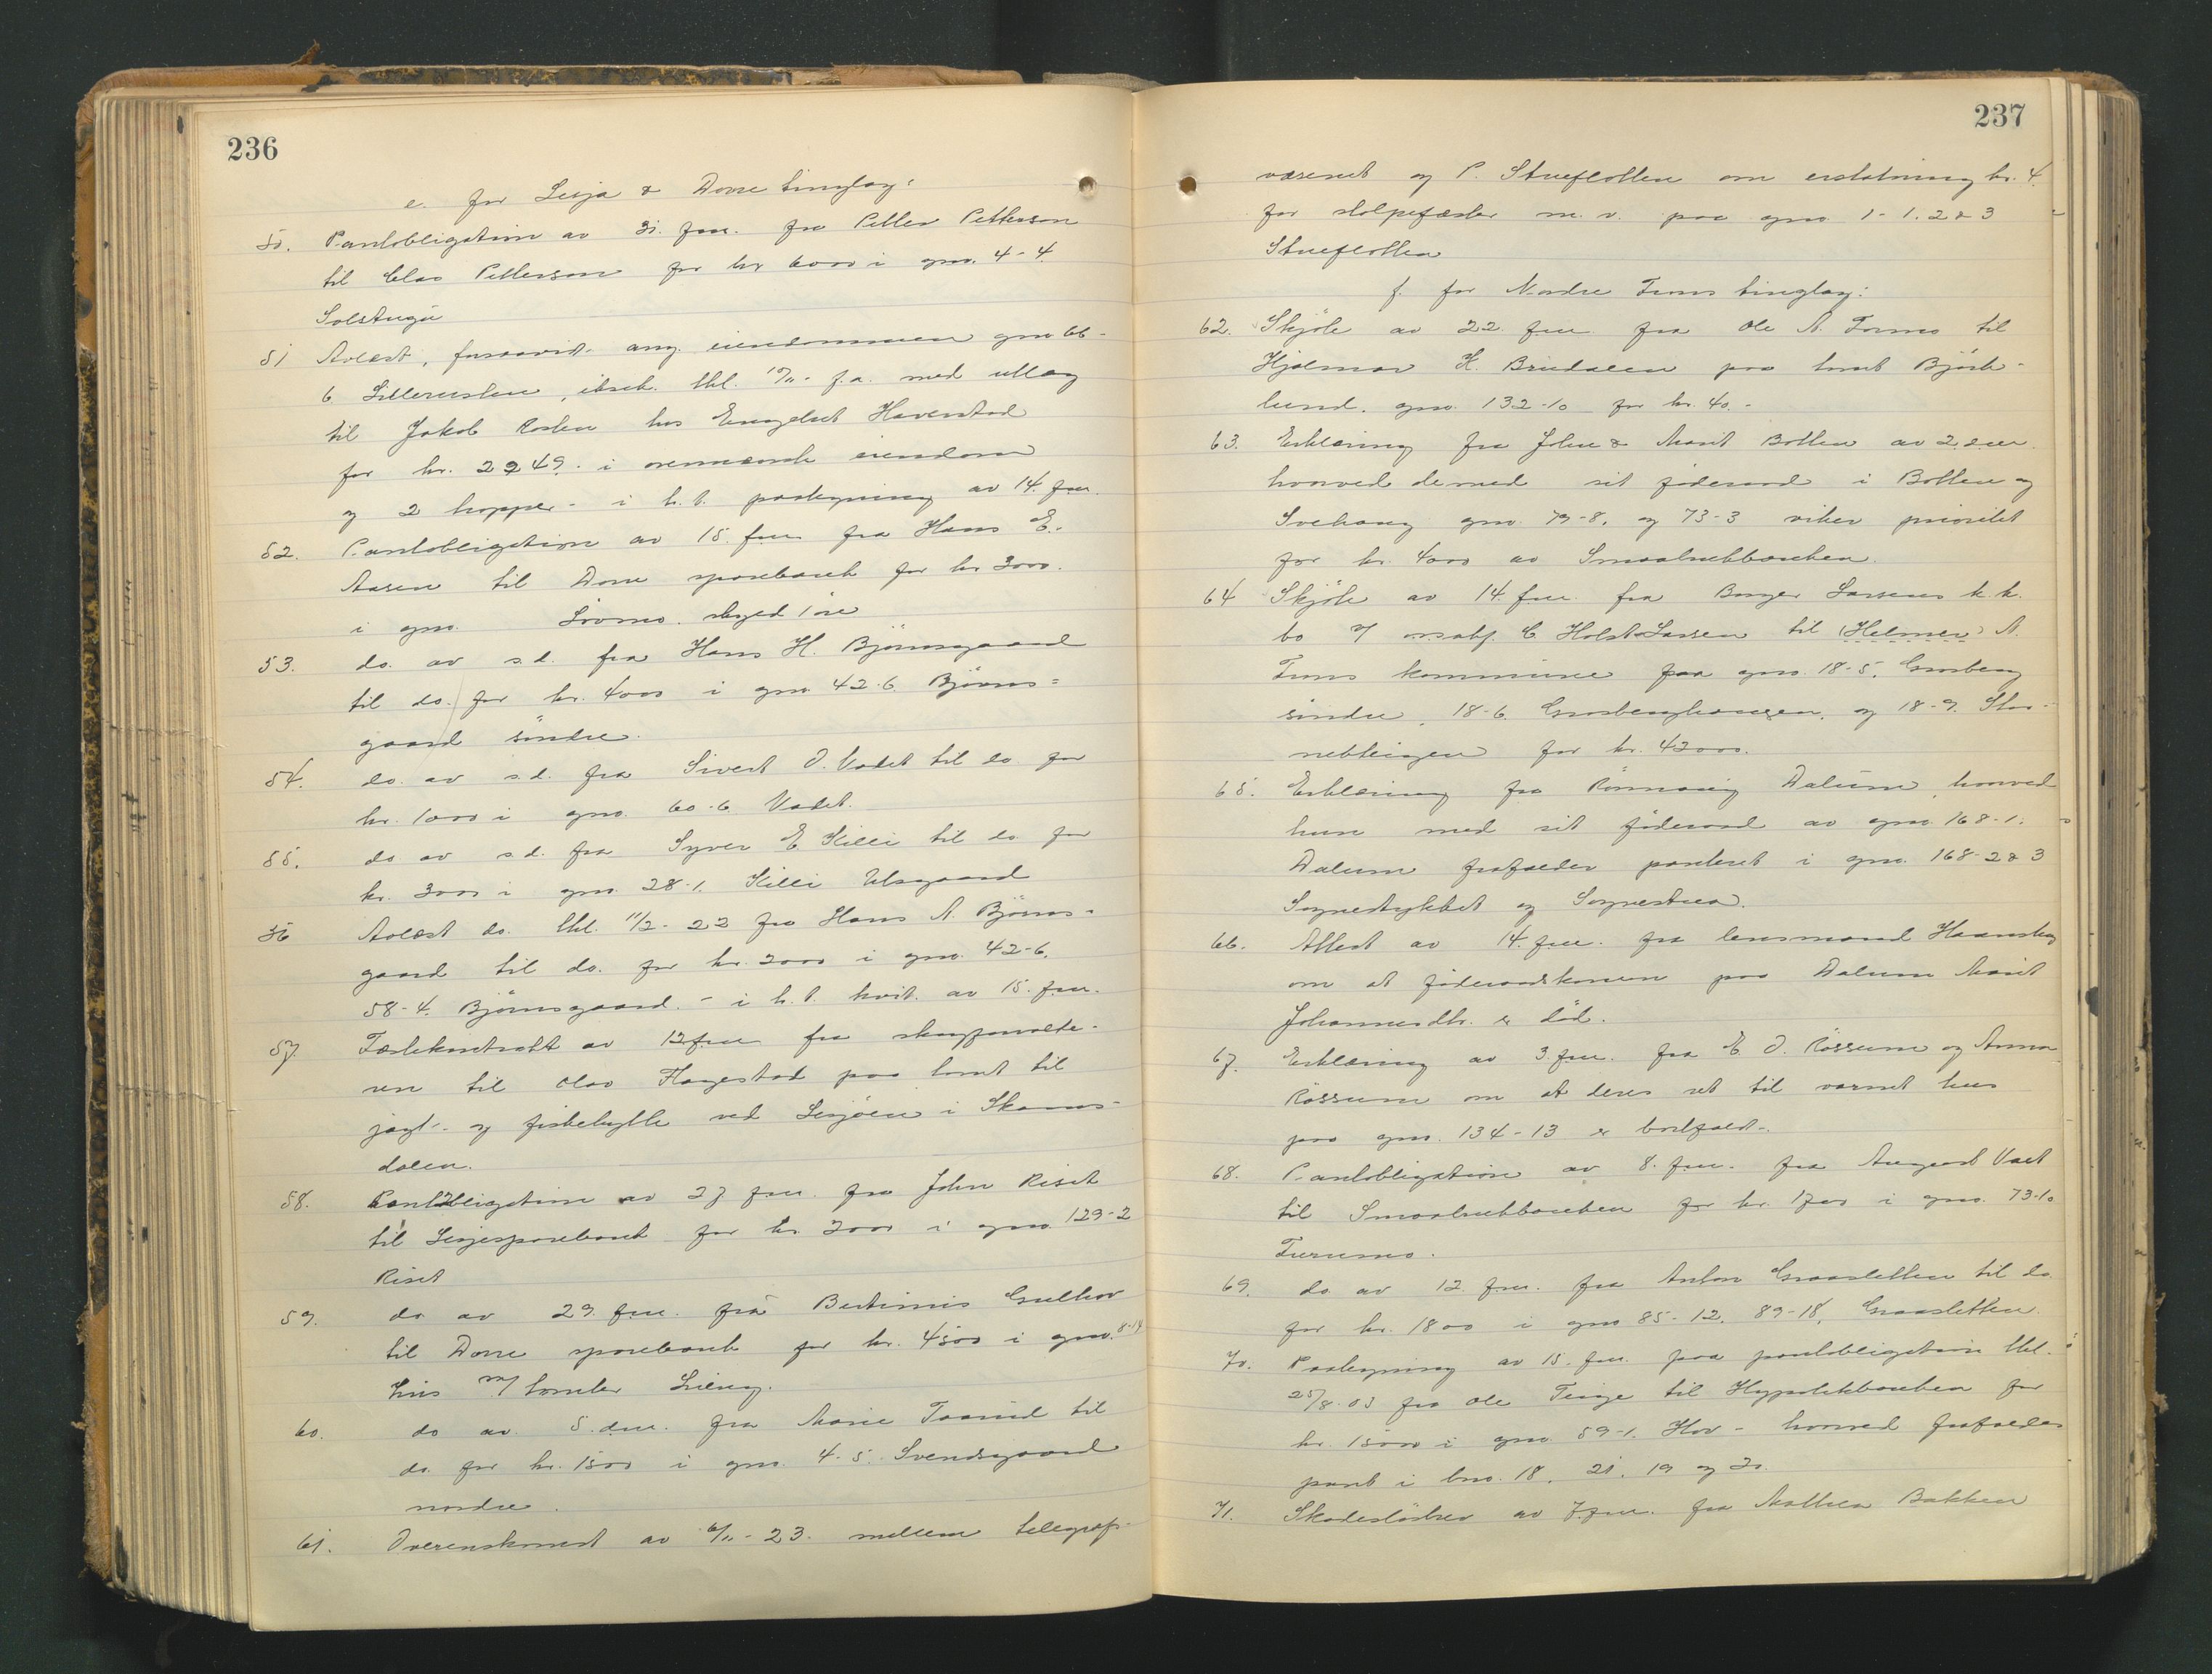 236
e. for Lesja & Dovre tinglag:
50. Pantobligation av 30. f.m. fra Petter Petterson
til Clas Petterson for kr 6000 i gno. 4-4
Solstugu
51 Avlæst, forsaavidt ang. eiendommen gno 66-
6 Lillerusten, ekstr. tkl. f.a. med utlæg
til Jakob Rosten hos Engelhet Haverstad
for kr. 2249. i ovennævnte eiendom
og 2 hopper - i h.t. paategning av 14. f.m.
52. Pantobligation av 15. f.m. fra Hans E.
Aasen til Dovre sparebank for kr 3000.
i gno. Lovmo. skyld 1 øre
53. do. av s.d. fra Hans H. Björnsgaard
til do. for kr. 4000 i gno. 42-6 Björns=
gaard söndre.
54. do. av s.d. fra Sivert O. Vadet til do for
kr. 1000 i gno. 60-6 Vadet.
55. do av s.d. fra Syver E Killi til do for
kr. 3000 i gno. 28-1. Killi Ulsgaard
56 Avlæst do. tkl. 11/2-22 fra Hans A. Björns-
gaard til do. for kr. 2000 i gno. 42-6.
58-4. Björnsgaard. - i h.t. kvit. av 15. f.m.
57. Festekontrakt av 12 f.m fra skogforvalte-
ren til Olav Flagestad paa tomt til
jagt- og fiskehytte ved Lesjöen i Skams-
dalen.
58. Pantobligation av 27 f.m. fra John Riset
til Lesjesparebank for kr. 2000 i gno. 129-2
Riset
59. do av 29. f.m. fra Bertinius Gulhov
til Dovre sparebank for kr. 4500 i gno. 8-14
hus m/ tomter Lieng.
60. do av. 5. d.m. fra Marie Taarud til
do. for kr. 1500 i gno. 4-5. Svendsgaard
nordre.
61. Overenskomst av 6/11-23. mellem telegraf-
237
væsenet og P. Stueflotten om erstatning kr. 4.
for stolpefæster m.v. paa gno. 1-1, 2 & 3
Stueflotten
f. for Nordre Frons tinglag:
62. Skjöte av 22 f.m. fra Ole A. Formo til
Hjalmar H. Brudalen paa tomt Björke-
lund. gno. 132-10 for kr. 40.-
63. Erklæring fra John & Marit Botten av 2. d.m.
hvorved de med sit föderaad i Botten og
Svehaug gno. 79-8, og 73-3 viker prioritet
for kr. 4000 av Smaabrukbanken.
64 Skjöte av 14. f.m. fra Borger Larsens k.k.
bo v/ o.r.sakf. C Holst-Larsen til (Helmer) N.
Frons kommune paa gno. 18-5. Grosberg
söndre, 18-6. Grosberghaugen, og 18-9. Stor-
nebkingen for kr. 42000.
65. Erklæring fra Rönnaug Dalum, hvorved
hun med sit föderaad av gno. 168-1.
Dalum frafalder panteret i gno. 168-2 & 3
Sognestykket og Sognestua.
66. Attest av 14. f.m. fra lensmand
om at föderaadskonen paa Dalum Marit
Johannesdtr. er död.
67. Erklæring av 3. f.m. fra E. O. Rössum og Anna
Rössum om at deres ret til varmt hus
paa gno. 134-13 er bortfaldt.
68. Pantobligation av 8. f.m. fra August Vaet
til Smaabrukbanken for kr. 1700 i gno. 73-10
Furumo.
69. do av 12 f.m. fra Anton Graasletten til do
for kr. 1800 i gno 85-12, 89-18, Graasletten.
70. Paategning av 15. f.m. paa pantobligation tkl.
25/8-03 fra Ole Teige til Hypotekbanken for
kr. 1500 i gno. 59-1. Hov - hvorved frafaldes
pant i bno. 18, 21, 19 og 20.
71. Skadeslösbrev av 7. f.m. fra Mathea Bakken